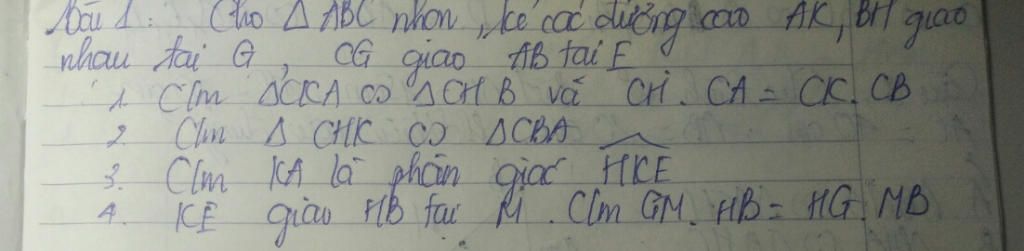 Bài 1: Cho △ ABC nhọn, kẻ các đường cao AK, BH giao
nhau tại G, CG giao AB tại E
1. C/m △CKA ∽ △CHB và CH. CA = CK. CB
2. C/m △ CHK ∽ △CBA
3. C/m KA là phân giác \widehat{HKE}
4. KE giao HB tại M. C/m GM. HB = HG. MB